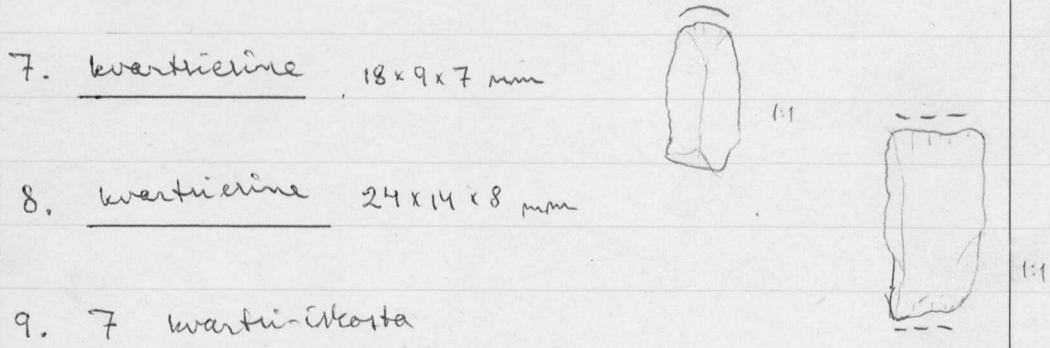 7. kvartsiesine 18 x 9 x 7 mm
1:1
8. kvartsiesine 24 x 14 x 8 mm
1:1
9. 7 kvartsi-iskosta